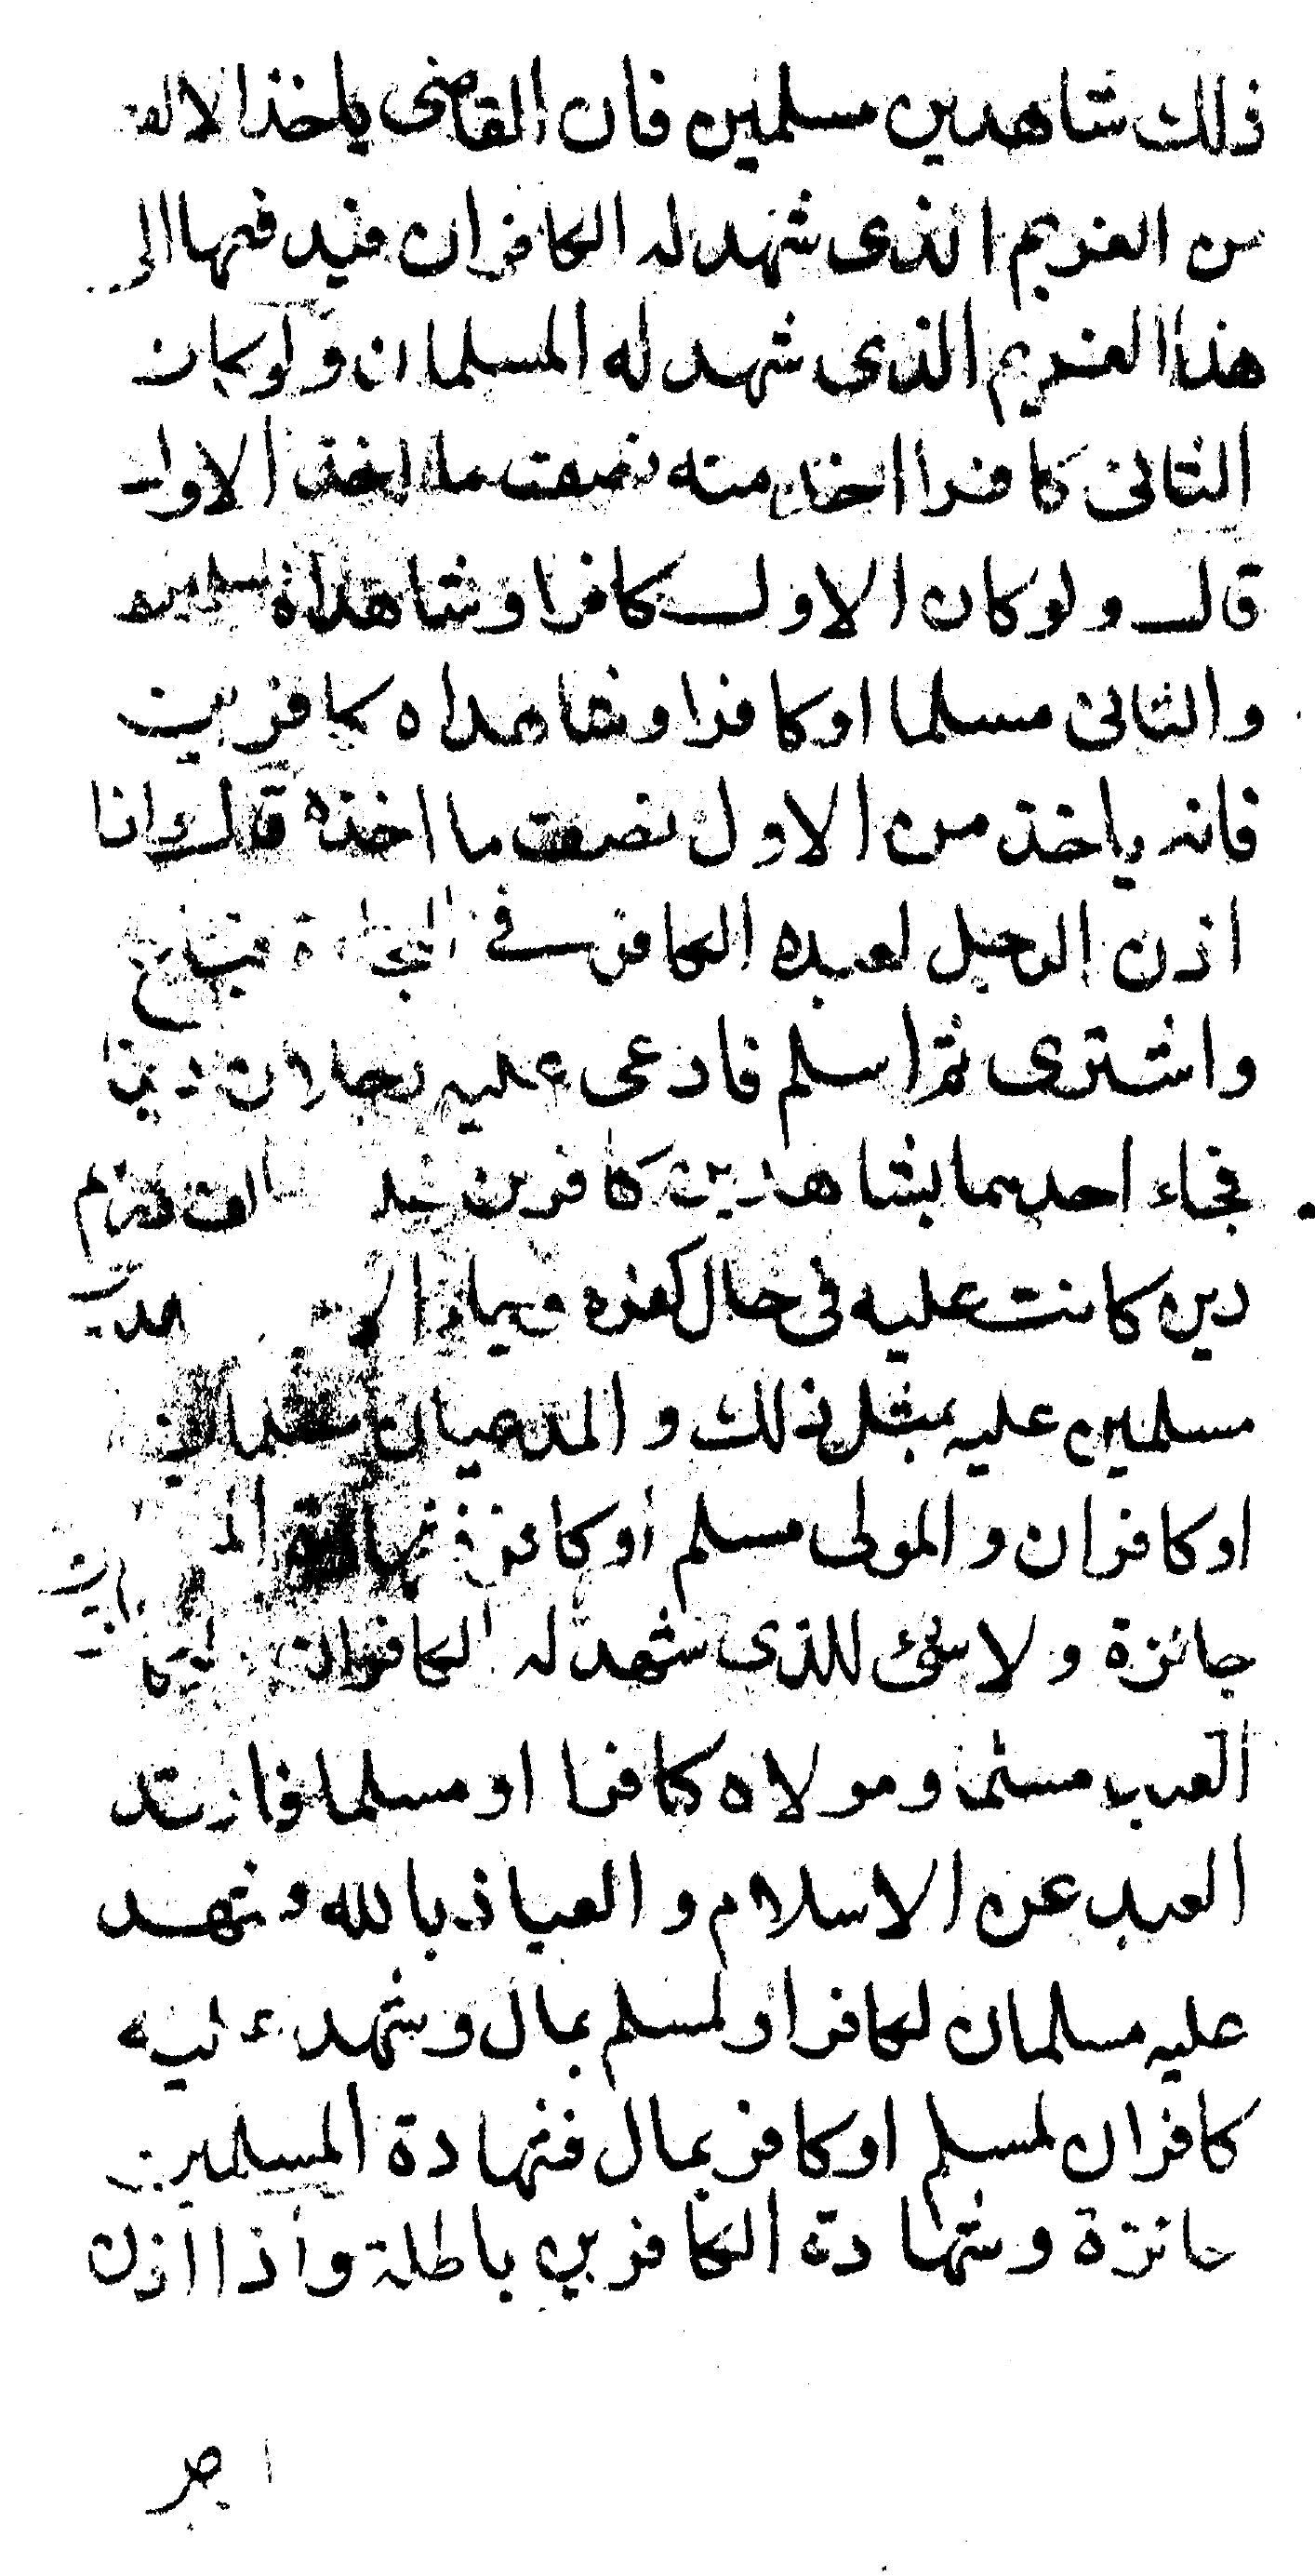 ذلك شاهدين مسلمين فان القاضى ياخذ الالف
من الغريم الذى شهد له الكافران فيدفعها الى
هذا الغريم الذى شهد له المسلمان ولو كان
الثانى كافرا اخذ منه نصف ما اخذ الاول
قال ولو كان الاول كافرا وشاهداه مسلمين
والثانى مسلما او كافرا وشاهداه كافرين
فانه ياخذ من الاول نصف ما اخذه قال واذا
اذن الرجل لعبده الكافر فى التجارة فباع
واشترى ثم اسلم فادعى عليه رجلان دينا
فجاء احدهما بشاهدين كافرين الف درهم
دين كانت عليه فى حال كفره وجاء
مسلمين عليه بمثل ذلك والمدعيان مسلمان
او كافران والمولى مسلم او كافر فشهادة
جائزة ولا شئ للذى شهد له الكافران
العبد مسلما ومولاه كافرا او مسلما فارتد
العبد عن الاسلام والعياذ بالله وشهد
عليه مسلمان لكافر او لمسلم بمال وشهد عليه
كافران لمسلم او كافر بمال فشهادة المسلمين
جائزة وشهادة الكافرين باطلة واذا اذن